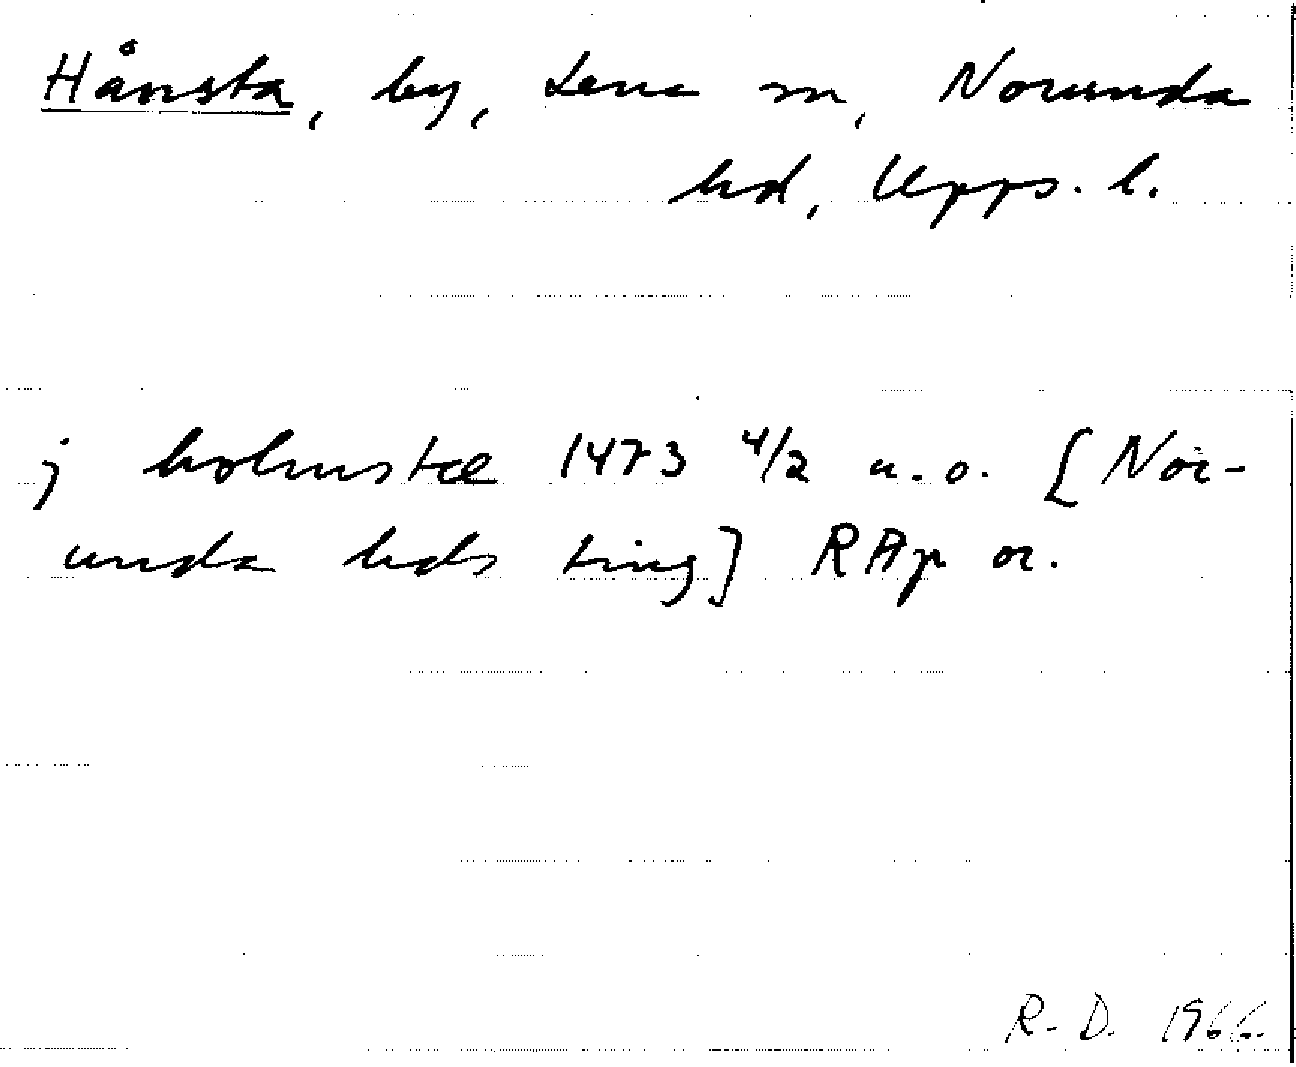 Hånsta, by, Lena sn, Norunda
hd, Upps. l.
j holmstæ 1473 4/2 u.o. [Nor-
unda hds ting] RAp or.
R. D. 1966.